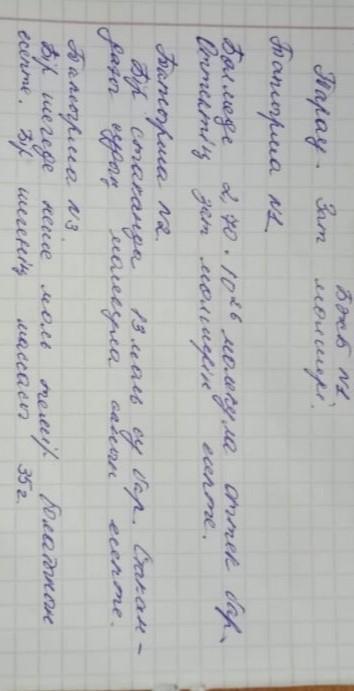 БЖБ №1
Тарау. Зат мөлшері.
Тапсырма №1.
Бөлмеде 2,70 · 10²⁶ молекула оттек бар.
Оттектің зат мөлшерін есепте.
Тапсырма №2.
Бір стаканда 13 моль су бар. Стакан-
дағы молекула санын есепте.
Тапсырма №3.
Бір шегеде неше моль темір болатынын
есепте. Бір шегенің массасы 35 г.